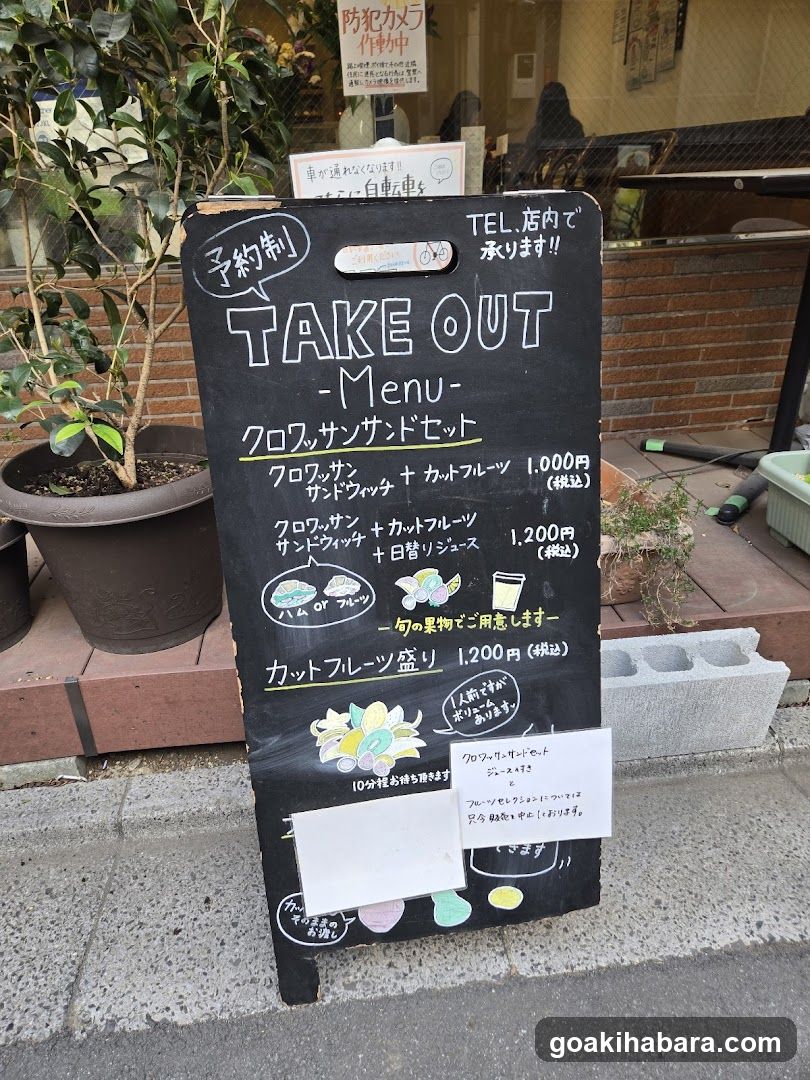 防犯カメラ
作動中
車が通れなくなります!!
自転車を
予約制
TEL.店内で
承ります!!
TAKE OUT
-Menu-
クロワッサンサンドセット
クロワッサン
サンドウィッチ + カットフルーツ 1,000円
(税込)
クロワッサン
サンドウィッチ + カットフルーツ
+ 日替りジュース 1,200円
(税込)
ハム or フルーツ
ー旬の果物でご用意しますー
カットフルーツ盛り 1,200円(税込)
1人前ですが
ボリューム
あります
10分程お待ち頂きます
クロワッサンサンドセット
ジュースつき
と
フルーツセレクションについては
只今販売を中止しております。
できます
そのままの
お渡し
goakihabara.com